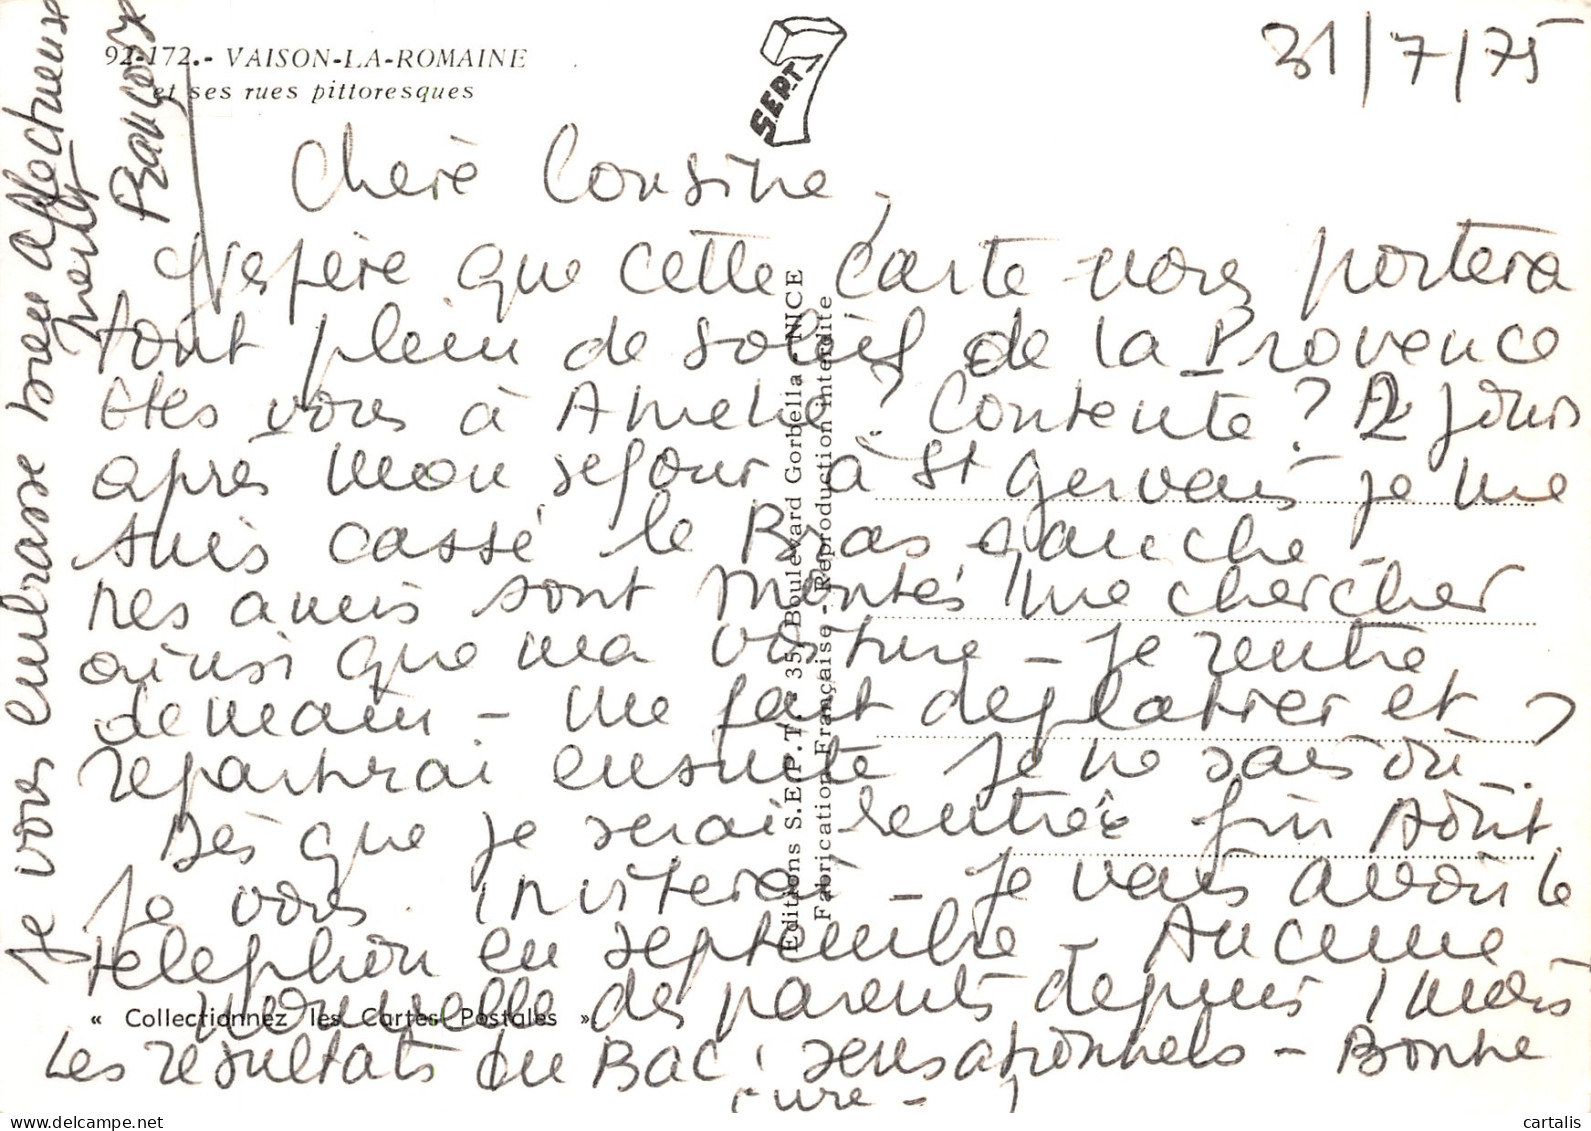 92-172.- VAISON-LA-ROMAINE
et ses rues pittoresques
S.E.P.T
31/7/75
Chère Cousine,
J'espère que cette carte vous portera
tout plein de soleil de la Provence
Etes vous à Amélie? Contente? 2 jours
après mon séjour à St Gervais je me
suis cassé le Bras gauche -
Des amis sont montés me chercher
ainsi que ma voiture - Je rentre
demain - me fait deplatrer et
repartirai ensuite je ne sais où -
Dès que je serai rentrée fin Août
Je vous inviterai - Je vais avoir le
téléphon en septembre - Aucune
nouvelle de parents depuis 1 mois
Les résultats du Bac: sensationnels - Bonne
cure - !
Je vous embrasse bien affectueuse
ment
Françoise
Editions S.E.P.T. - 35, Boulevard Gorbella - NICE
Fabrication Française - Reproduction Interdite
« Collectionnez les Cartes Postales »
delcampe.net
cartalis